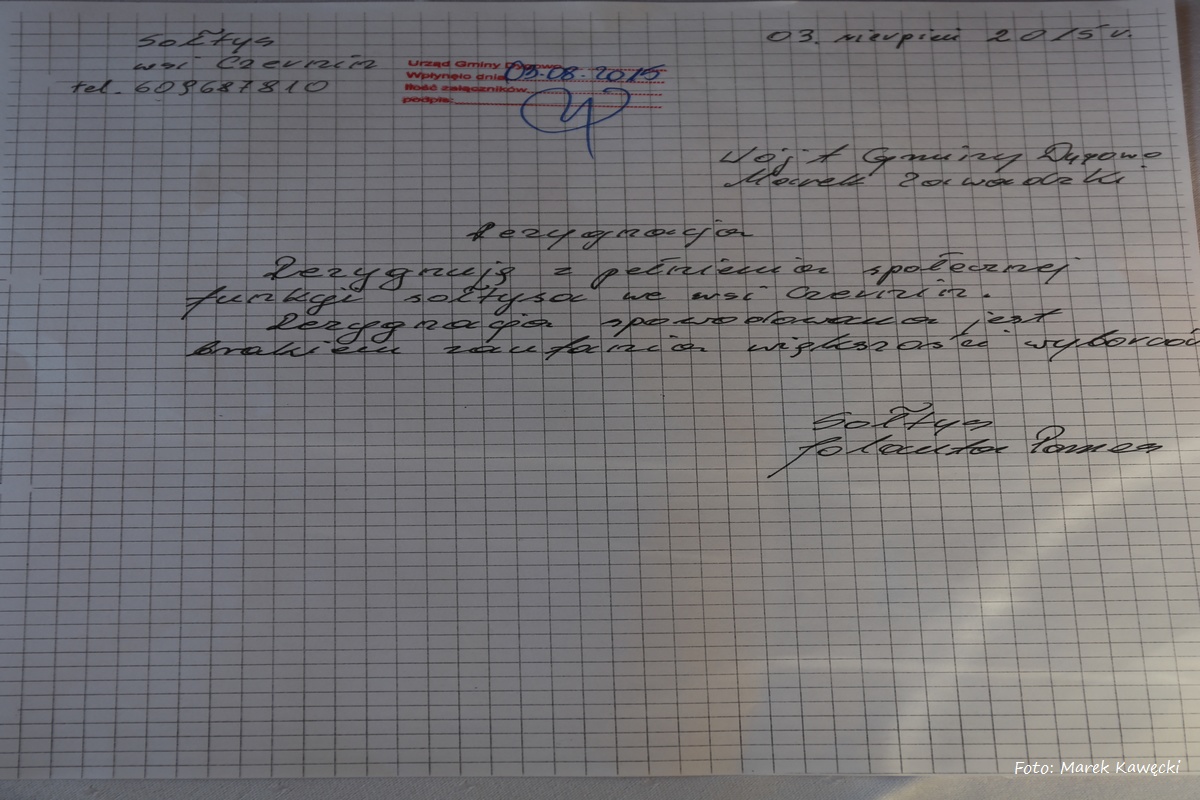 Sołtys
wsi Czernin
tel. 609687810
03. sierpień 2015 r.
Urząd Gminy Dygowo
Wpłynęło dnia 03-08-2015
Ilość załączników
podpis:
Wójt Gminy Dygowo
Marek Zawadzki
Rezygnacja
Rezygnuję z pełnienia społecznej
funkcji sołtysa we wsi Czernin.
Rezygnacja spowodowana jest
brakiem zaufania większości wyborców
Sołtys
Jolanta
Foto: Marek Kawęcki